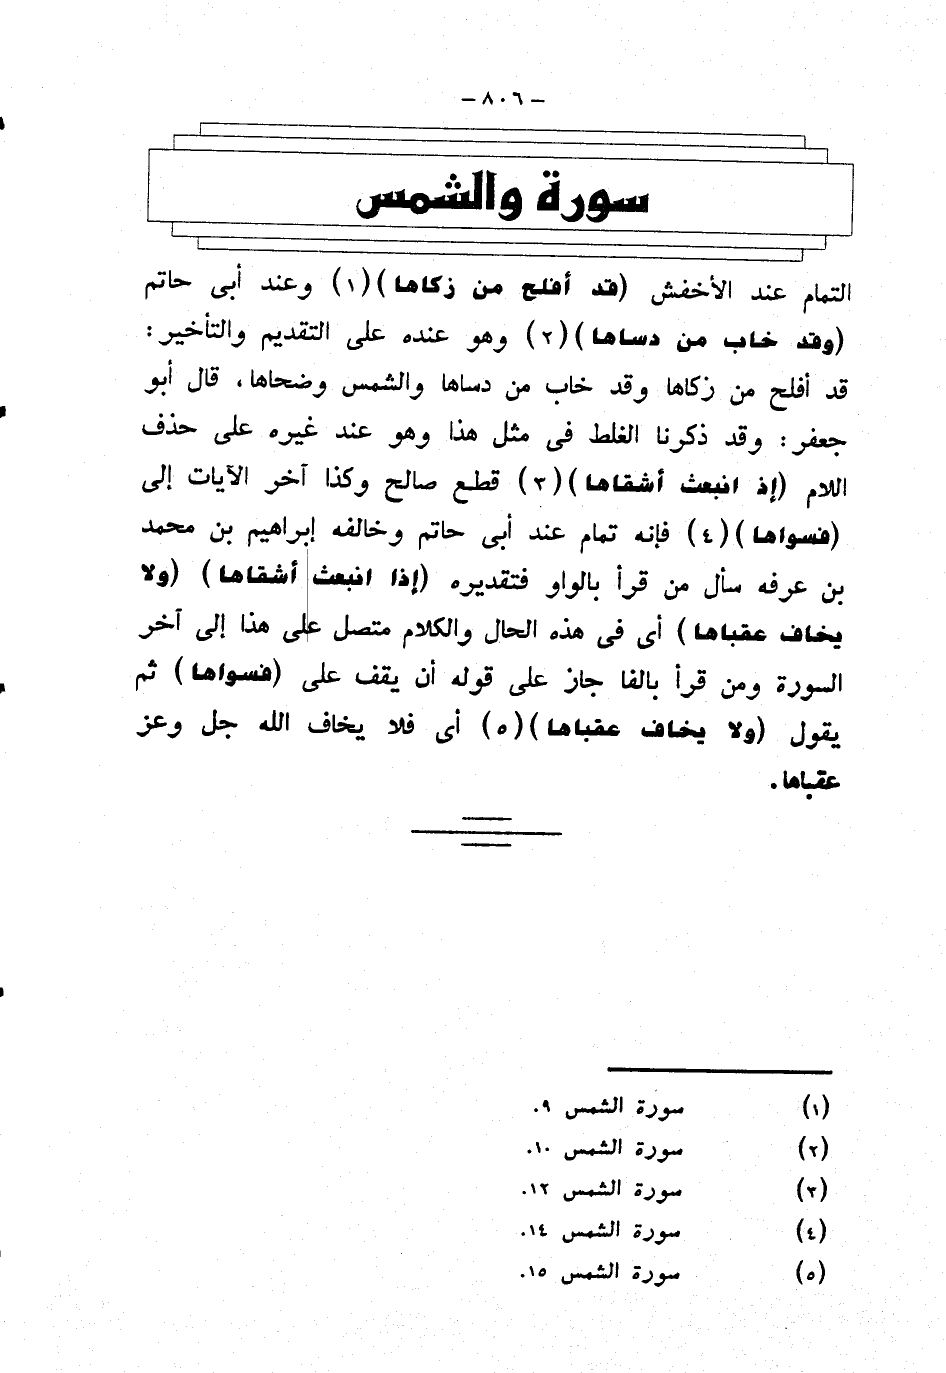 – ٨٠٦ –
سورة والشمس
التمام عند الأخفش (قد أفلح من زكاها)(١) وعند أبى حاتم
(وقد خاب من دساها)(٢) وهو عنده على التقديم والتأخير:
قد أفلح من زكاها وقد خاب من دساها والشمس وضحاها، قال أبو
جعفر: وقد ذكرنا الغلط فى مثل هذا وهو عند غيره على حذف
اللام (إذ انبعث أشقاها)(٣) قطع صالح وكذا آخر الآيات إلى
(فسواها)(٤) فإنه تمام عند أبى حاتم وخالفه إبراهيم بن محمد
بن عرفه سأل من قرأ بالواو فتقديره (إذا انبعث أشقاها) (ولا
يخاف عقباها) أى فى هذه الحال والكلام متصل على هذا إلى آخر
السورة ومن قرأ بالفا جاز على قوله أن يقف على (فسواها) ثم
يقول (ولا يخاف عقباها)(٥) أى فلا يخاف الله جل وعز
عقباها.
(١) سورة الشمس ٩.
(٢) سورة الشمس ١٠.
(٣) سورة الشمس ١٢.
(٤) سورة الشمس ١٤.
(٥) سورة الشمس ١٥.